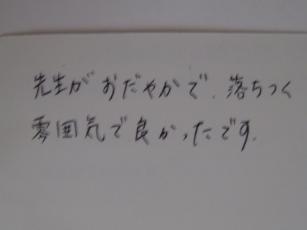 先生がおだやかで、落ちつく
雰囲気で良かったです。